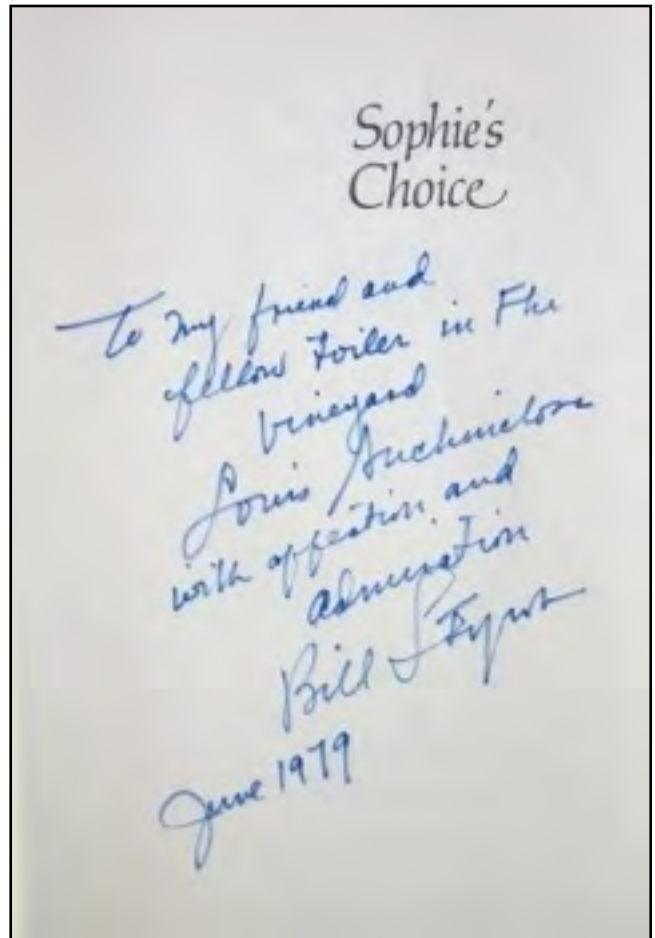 Sophie's
Choice
To my friend and
fellow toiler in the
vineyard
Louis Auchincloss
with affection and
admiration
Bill Styron
June 1979